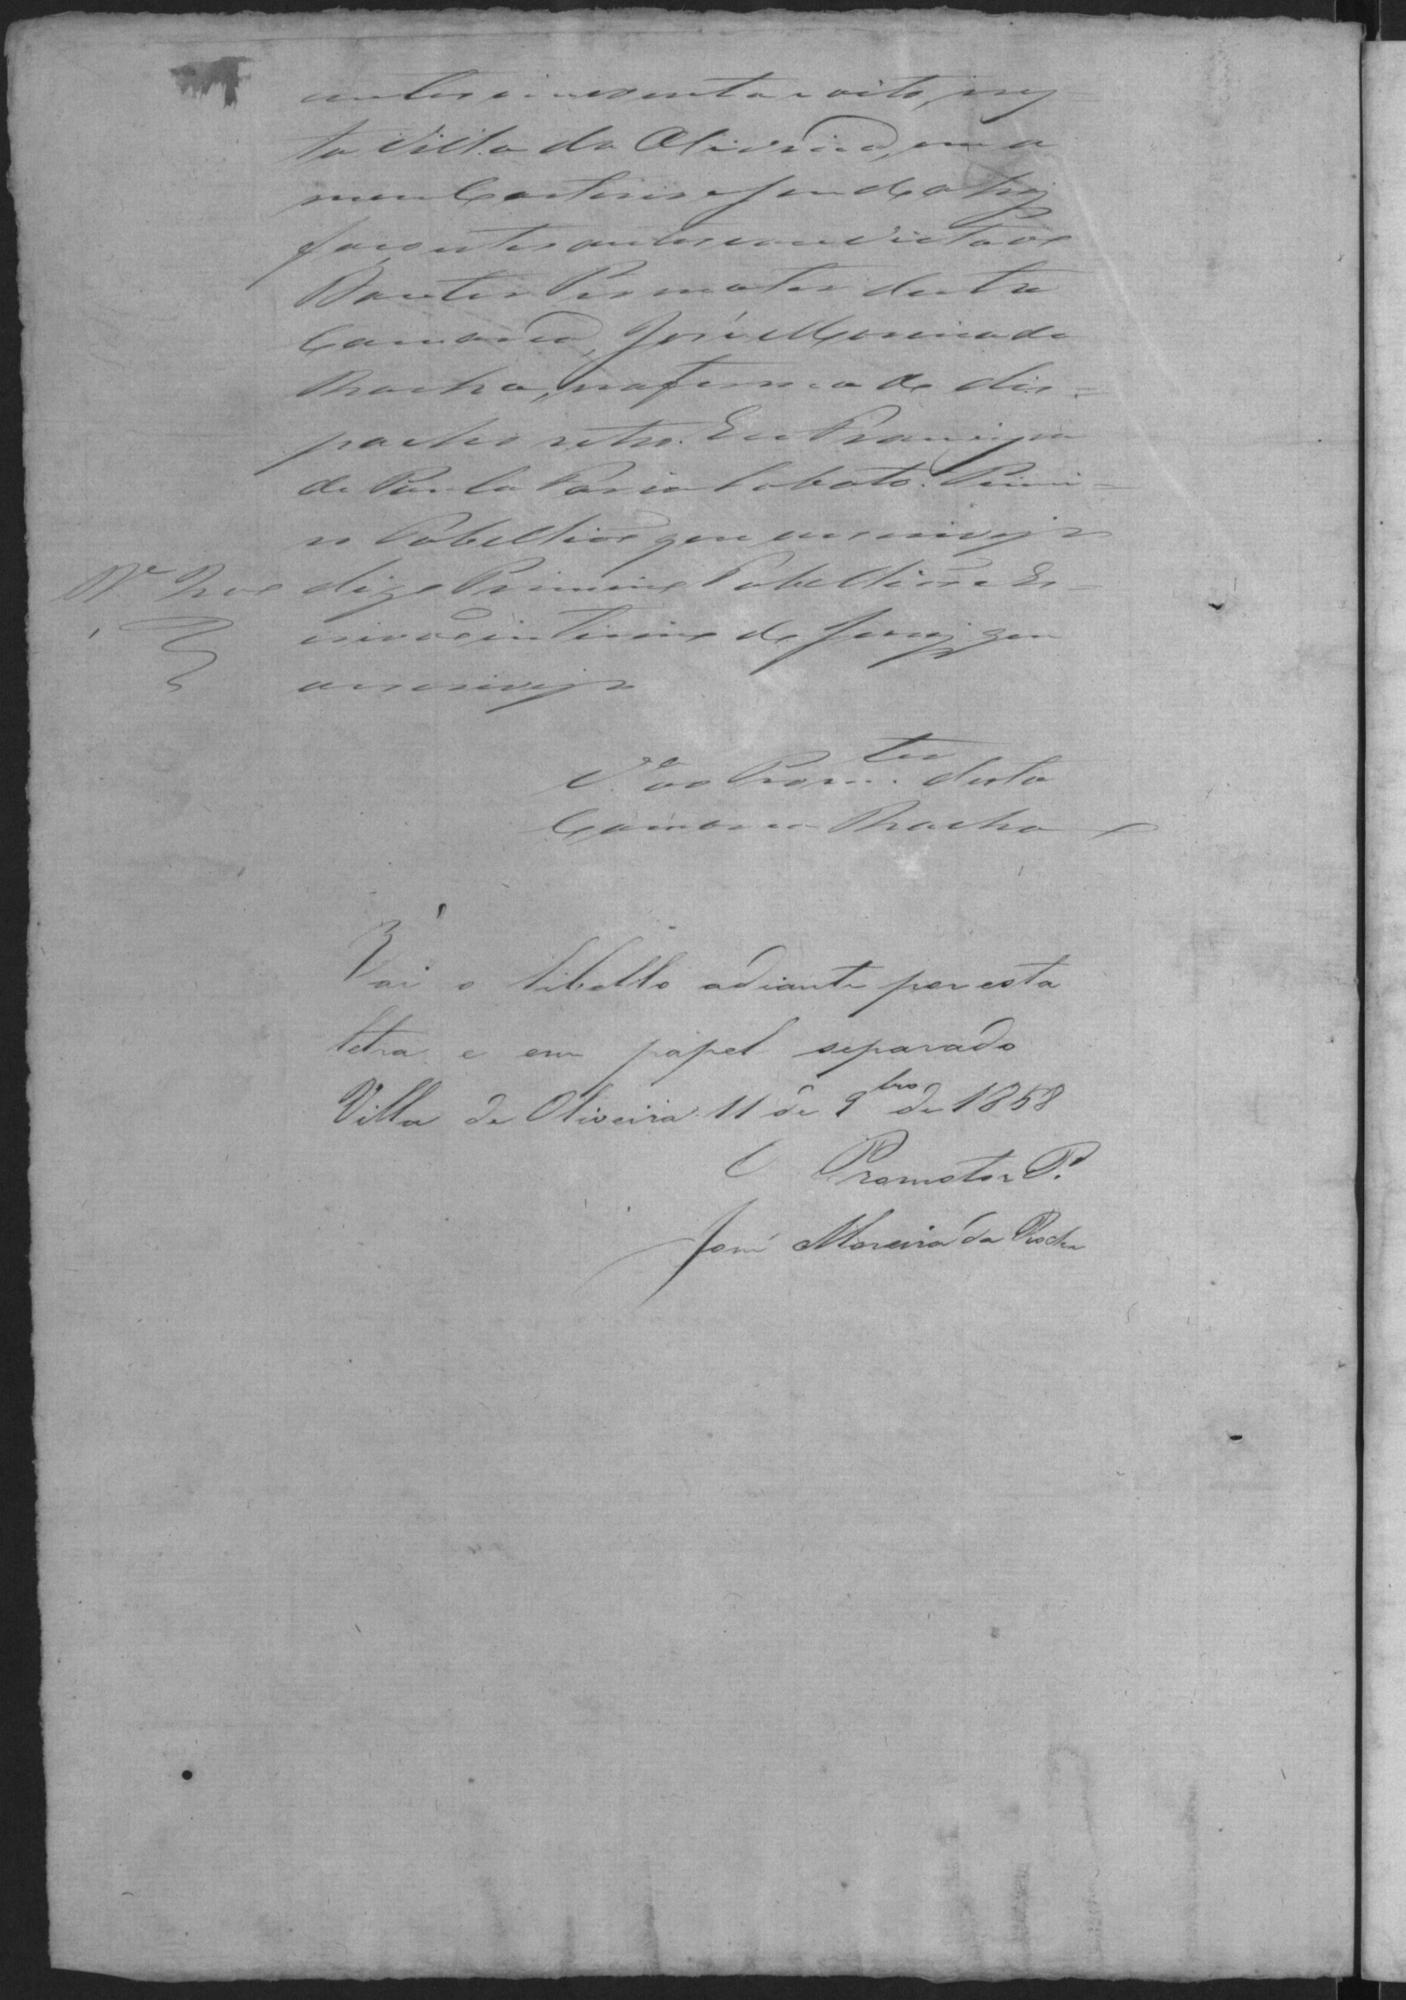 centos cincoenta e oito, nes-
ta Villa da Oliveira, em o
meu Cartorio e sendo ahi
faço estes autos com vista ao
Doutor Promotor desta
Comarca, José Moreira da
Rocha, na forma do dis=
pacho retro. Eu Francisco
de Paula Faria Lobato. Primei=
ro Tabellião que escrevi
digo Primeiro Tabellião e Es-
crivão interino do Jury que
escrevi
V.ta ao Prom.tor desta
Comarca Rocha
Vai o libello adiante por esta
letra e em papel separado
Villa de Oliveira 11 de 9bro de 1858
O Promotor P.
José Moreira da Rocha